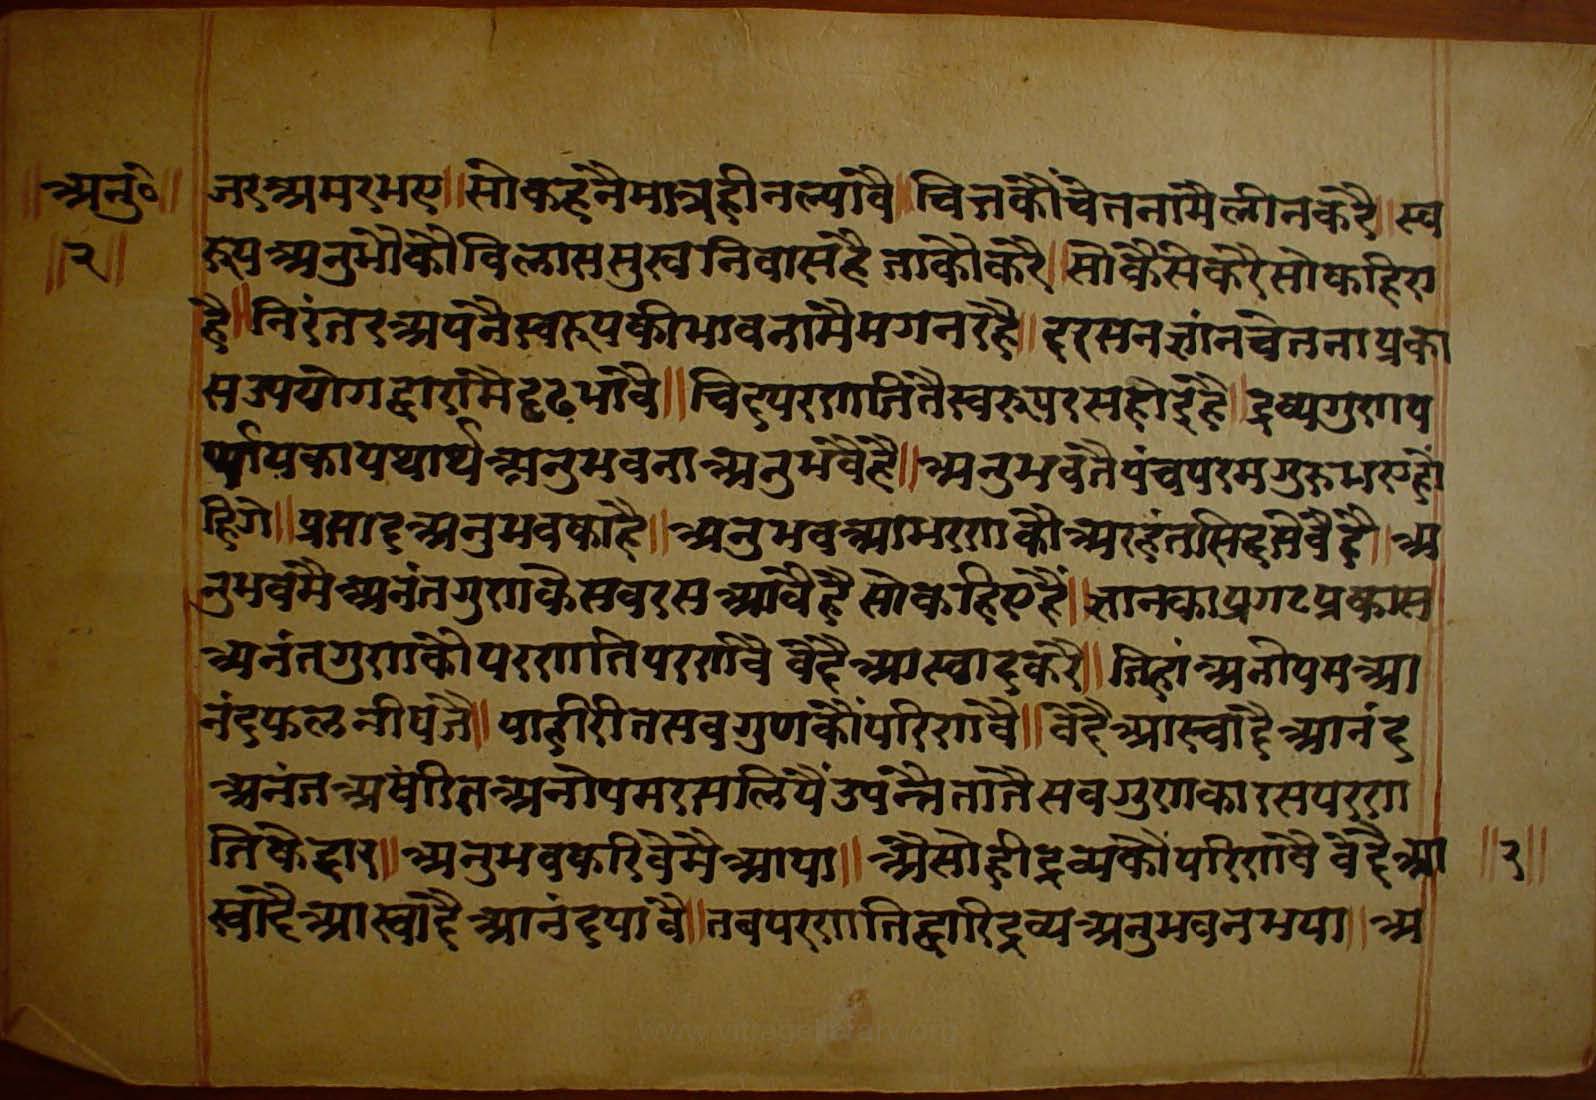 ॥अनु॰॥ जरअमरभए॥ सो कहनैमात्रहीनल्यावै॥ चित्तकौंचेतनामैलीनकरै॥ स्व
॥२॥ रूपअनुभौकौविलाससुखनिवासहै ताकौकरै॥ सोकैसैकरैसोकहिए
है॥ निरंतरअपनैस्वरूपकीभावनामैमगनरहै॥ दरसनज्ञांनचेतनाप्रका
सउपयोगद्वारामैदृढभावै॥ चिदपरणतितैस्वरूपरसहोईहै॥ द्रव्यगुणप
र्यायकायथार्थअनुभवनाअनुभवहै॥ अनुभवतैपंचपरमगुरुभएहों
हिगे॥ प्रसादअनुभवकाहै॥ अनुभवआचरणकौअरहंतसिद्धसेवैहै॥ अ
नुभवमैअनंतगुणकेसबरसआवैहै सोकहिएहैं॥ ज्ञानकाप्रगटप्रकास
अनंतगुणकौपरणतिपरणवै वेदैआस्वादकरै॥ तिहांअनोपमआ
नंदफलनीपजै॥ याहीरीतसबगुणकौंपरिणवै॥ वेदैआस्वादैआनंद
अनंतअषंडितअनोपमरसलियैंउपन्नैतातैसबगुणकारसपरण
तिकैद्वार॥ अनुभवकरिवेमैआया॥ असोहीद्रव्यकौंपरिणवै वेदैआ ॥२॥
स्वादैआस्वादैआनंदपावै॥ तबपरणतिद्वारिद्रव्यअनुभवनभया॥ अ
www.vitragelibrary.org